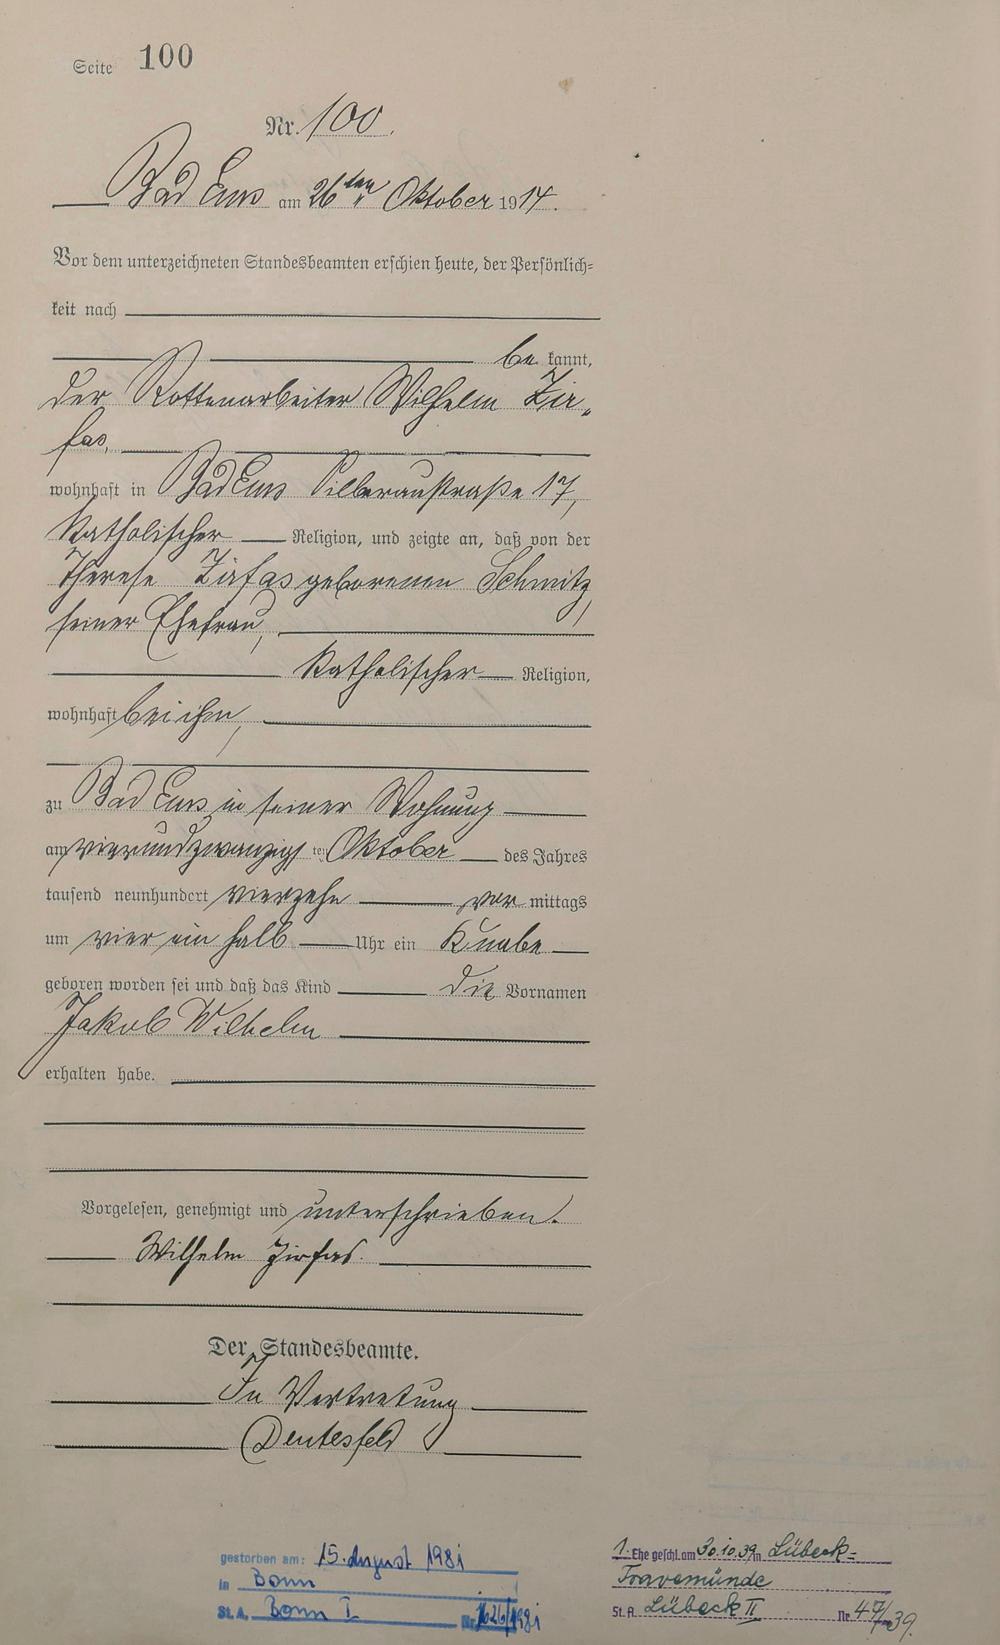 Seite 100
Nr. 100.
Bad Ems am 26ten Oktober 1914.
Vor dem unterzeichneten Standesbeamten erschien heute, der Persönlich=
keit nach
be kannt,
der Rottenarbeiter Wilhelm Zir-
fas,
wohnhaft in Bad Ems Silberaustraße 17,
katholischer Religion, und zeigte an, daß von der
Therese Zirfas geborenen Schmitz,
seiner Ehefrau,
katholischer Religion,
wohnhaft bei ihm,
zu Bad Ems in seiner Wohnung
am vierundzwanzigsten Oktober des Jahres
tausend neunhundert vierzehn vor mittags
um vier ein halb Uhr ein Knabe
geboren worden sei und daß das Kind die Vornamen
Jakob Wilhelm
erhalten habe.
Vorgelesen, genehmigt und unterschrieben.
Wilhelm Zirfas.
Der Standesbeamte.
In Vertretung
gestorben am: 15. August 1981
in Bonn
St. A. Bonn I Nr. /1981
1. Ehe geschl. am 30.10.39 in Lübeck-
Travemünde
St. A. Lübeck II Nr. 47/39.